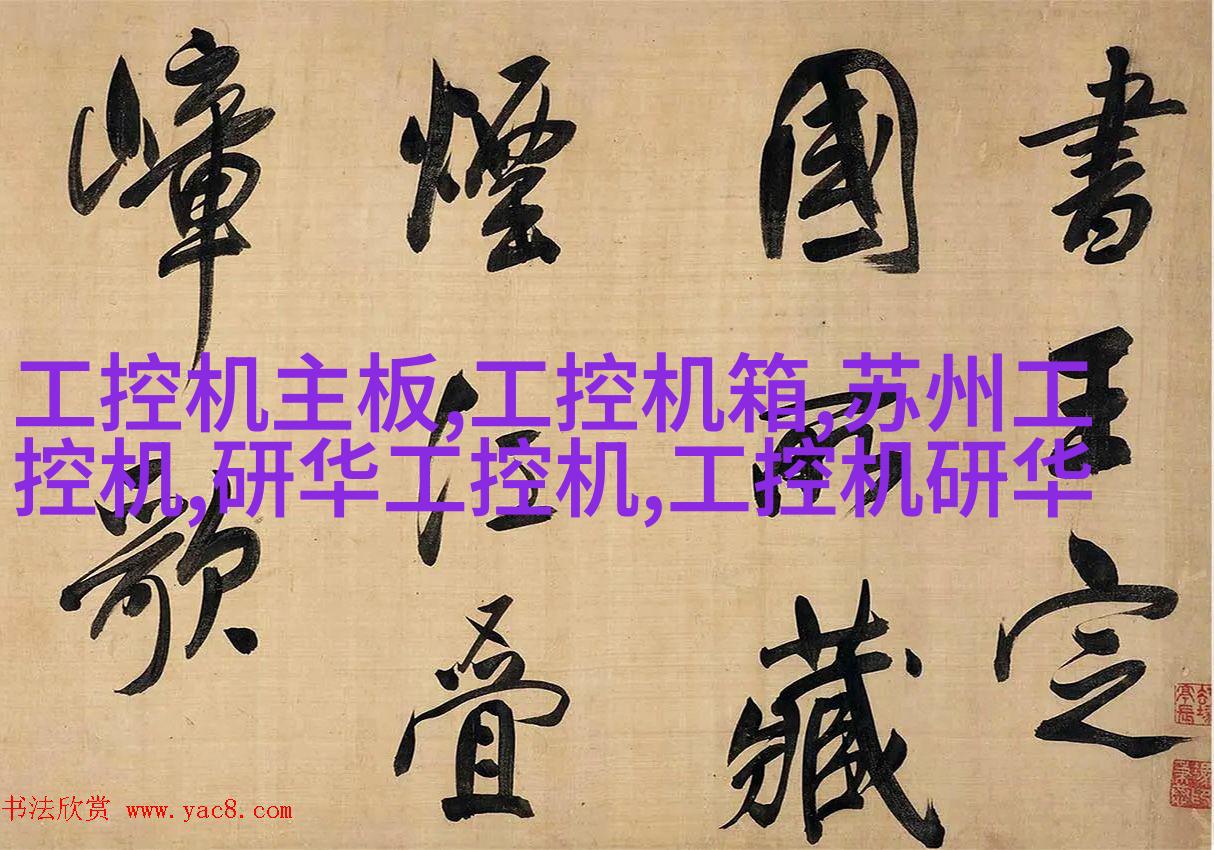 書王定
國藏
煙江疊
嶂歌
工控机主板,工控机箱,苏州工
控机,研华工控机,工控机研华
书法欣赏 www.yac8.com